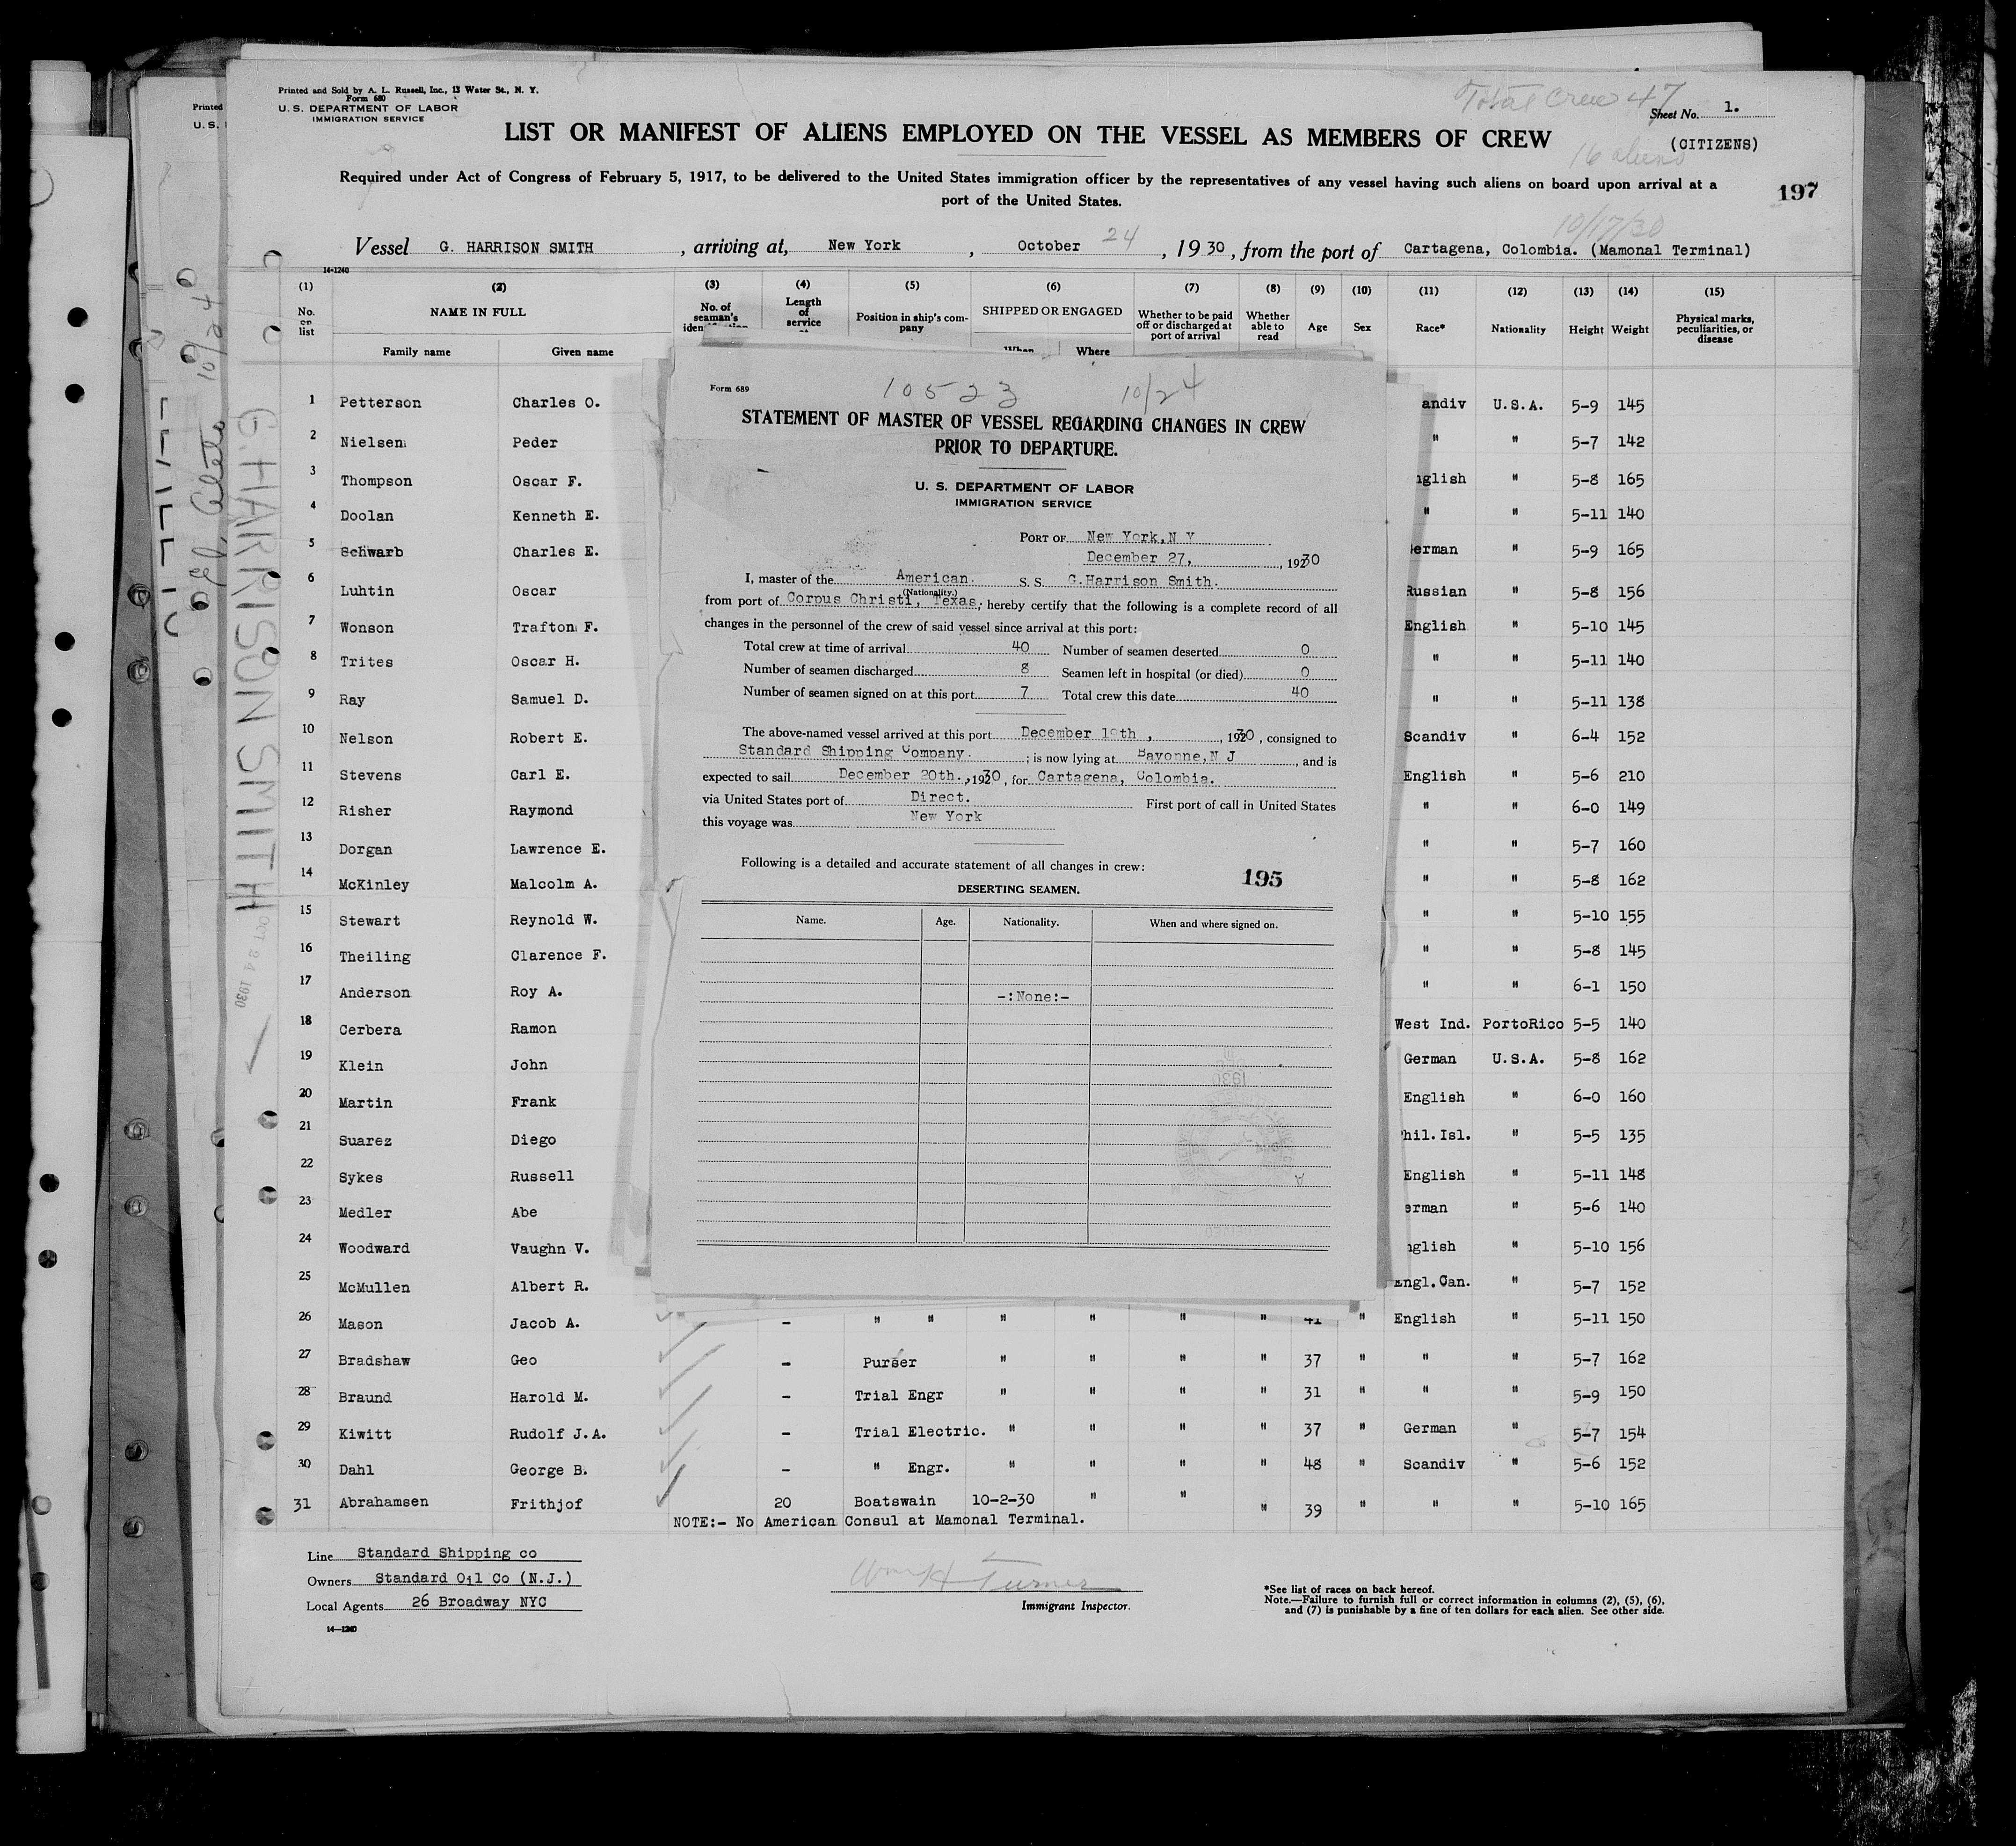 Printed and Sold by A. L. Russell, Inc., 13 Water St., N. Y.
Form 680
U. S. DEPARTMENT OF LABOR
IMMIGRATION SERVICE
Total Crew 47
Sheet No. 1.
LIST OR MANIFEST OF ALIENS EMPLOYED ON THE VESSEL AS MEMBERS OF CREW
(CITIZENS)
16 aliens
Required under Act of Congress of February 5, 1917, to be delivered to the United States immigration officer by the representatives of any vessel having such aliens on board upon arrival at a
port of the United States.
197
10/17/30
Vessel G. HARRISON SMITH, arriving at, New York, October 24, 1930, from the port of Cartagena, Colombia. (Mamonal Terminal)
14-1240
(1) (2) (3) (4) (5) (6) (7) (8) (9) (10) (11) (12) (13) (14) (15)
No. on list NAME IN FULL No. of seaman's Length of service Position in ship's company SHIPPED OR ENGAGED Whether to be paid off or discharged at port of arrival Whether able to read Age Sex Race* Nationality Height Weight Physical marks, peculiarities, or disease
Family name Given name When Where
1 Petterson Charles O. andiv U.S.A. 5-9 145
2 Nielsen Peder " " 5-7 142
3 Thompson Oscar F. nglish " 5-8 165
4 Doolan Kenneth E. " " 5-11 140
5 Schwarb Charles E. erman " 5-9 165
6 Luhtin Oscar Russian " 5-8 156
7 Wonson Trafton F. English " 5-10 145
8 Trites Oscar H. " " 5-11 140
9 Ray Samuel D. " " 5-11 138
10 Nelson Robert E. Scandiv " 6-4 152
11 Stevens Carl E. English " 5-6 210
12 Risher Raymond " " 6-0 149
13 Dorgan Lawrence E. " " 5-7 160
14 McKinley Malcolm A. " " 5-8 162
15 Stewart Reynold W. " " 5-10 155
16 Theiling Clarence F. " " 5-8 145
17 Anderson Roy A. " " 6-1 150
18 Cerbera Ramon West Ind. PortoRico 5-5 140
19 Klein John German U.S.A. 5-8 162
20 Martin Frank English " 6-0 160
21 Suarez Diego hil.Isl. " 5-5 135
22 Sykes Russell English " 5-11 148
23 Medler Abe erman " 5-6 140
24 Woodward Vaughn V. nglish " 5-10 156
25 McMullen Albert R. Engl.Can. " 5-7 152
26 Mason Jacob A. - " " " " " " 41 " English " 5-11 150
27 Bradshaw Geo - Purser " " " " 37 " " " 5-7 162
28 Braund Harold M. - Trial Engr " " " " 31 " " " 5-9 150
29 Kiwitt Rudolf J.A. - Trial Electric. " " " " 37 " German " 5-7 154
30 Dahl George B. - " Engr. " " " " 48 " Scandiv " 5-6 152
31 Abrahamsen Frithjof 20 Boatswain 10-2-30 " " " 39 " " " 5-10 165
NOTE:- No American Consul at Mamonal Terminal.
Line Standard Shipping co
Owners Standard Oil Co (N.J.)
Local Agents 26 Broadway NYC
14-1240
Wm H Turner
Immigrant Inspector.
*See list of races on back hereof.
Note.—Failure to furnish full or correct information in columns (2), (5), (6),
and (7) is punishable by a fine of ten dollars for each alien. See other side.
Form 689
10523 10/24
STATEMENT OF MASTER OF VESSEL REGARDING CHANGES IN CREW
PRIOR TO DEPARTURE.
U. S. DEPARTMENT OF LABOR
IMMIGRATION SERVICE
PORT OF New York, N Y
December 27, 1930
I, master of the American. S. S. G.Harrison Smith.
(Nationality.)
from port of Corpus Christi, Texas, hereby certify that the following is a complete record of all
changes in the personnel of the crew of said vessel since arrival at this port:
Total crew at time of arrival 40 Number of seamen deserted 0
Number of seamen discharged 8 Seamen left in hospital (or died) 0
Number of seamen signed on at this port 7 Total crew this date 40
The above-named vessel arrived at this port December 19th, 1930, consigned to
Standard Shipping Company.; is now lying at Bayonne, N J, and is
expected to sail December 20th., 1930, for Cartagena, Colombia.
via United States port of Direct. First port of call in United States
this voyage was New York
Following is a detailed and accurate statement of all changes in crew:
195
DESERTING SEAMEN.
Name. Age. Nationality. When and where signed on.
-:None:-
G. HARRISON SMITH
OCT 24 1930
Printed
U. S.